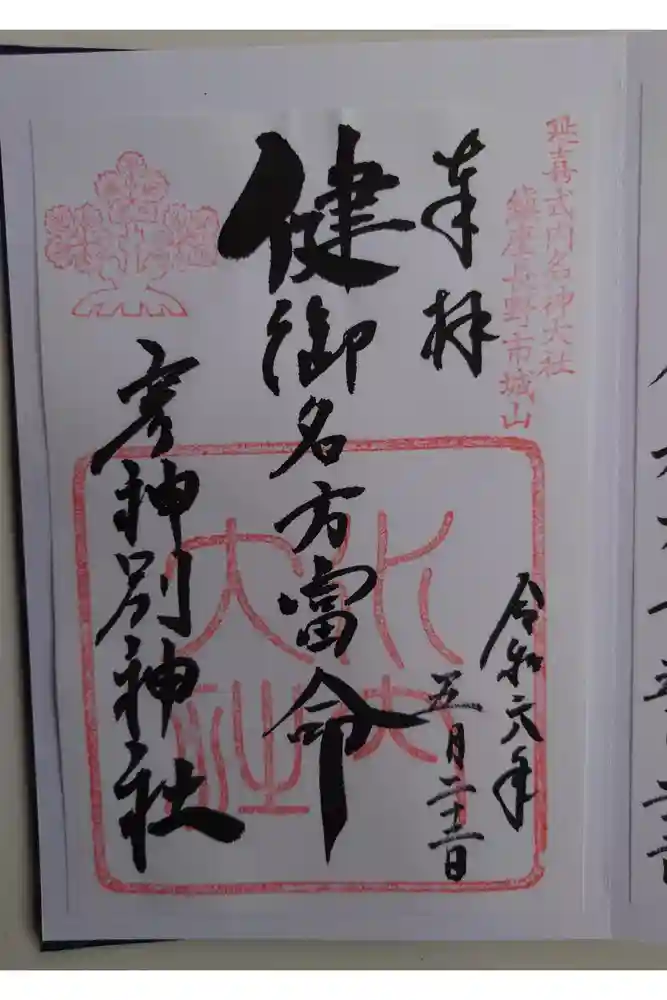 延喜式内名神大社
鎮座長野市城山
奉拝
令和六年
五月二十三日
健御名方富命
彦神別神社
水内
大社